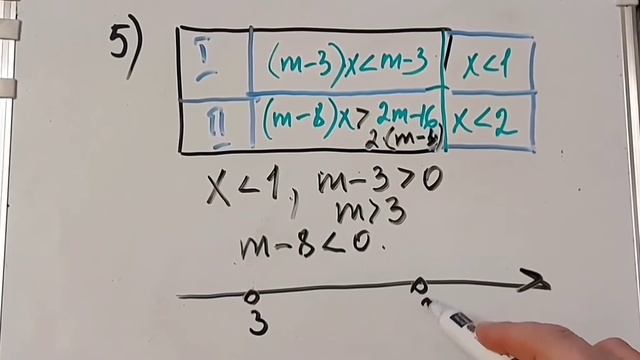 5)
I (m-3)x<m-3 x<1
II (m-8)x>2m-16 x<2
2(m-8)
x<1, m-3>0
m>3
m-8<0.
3